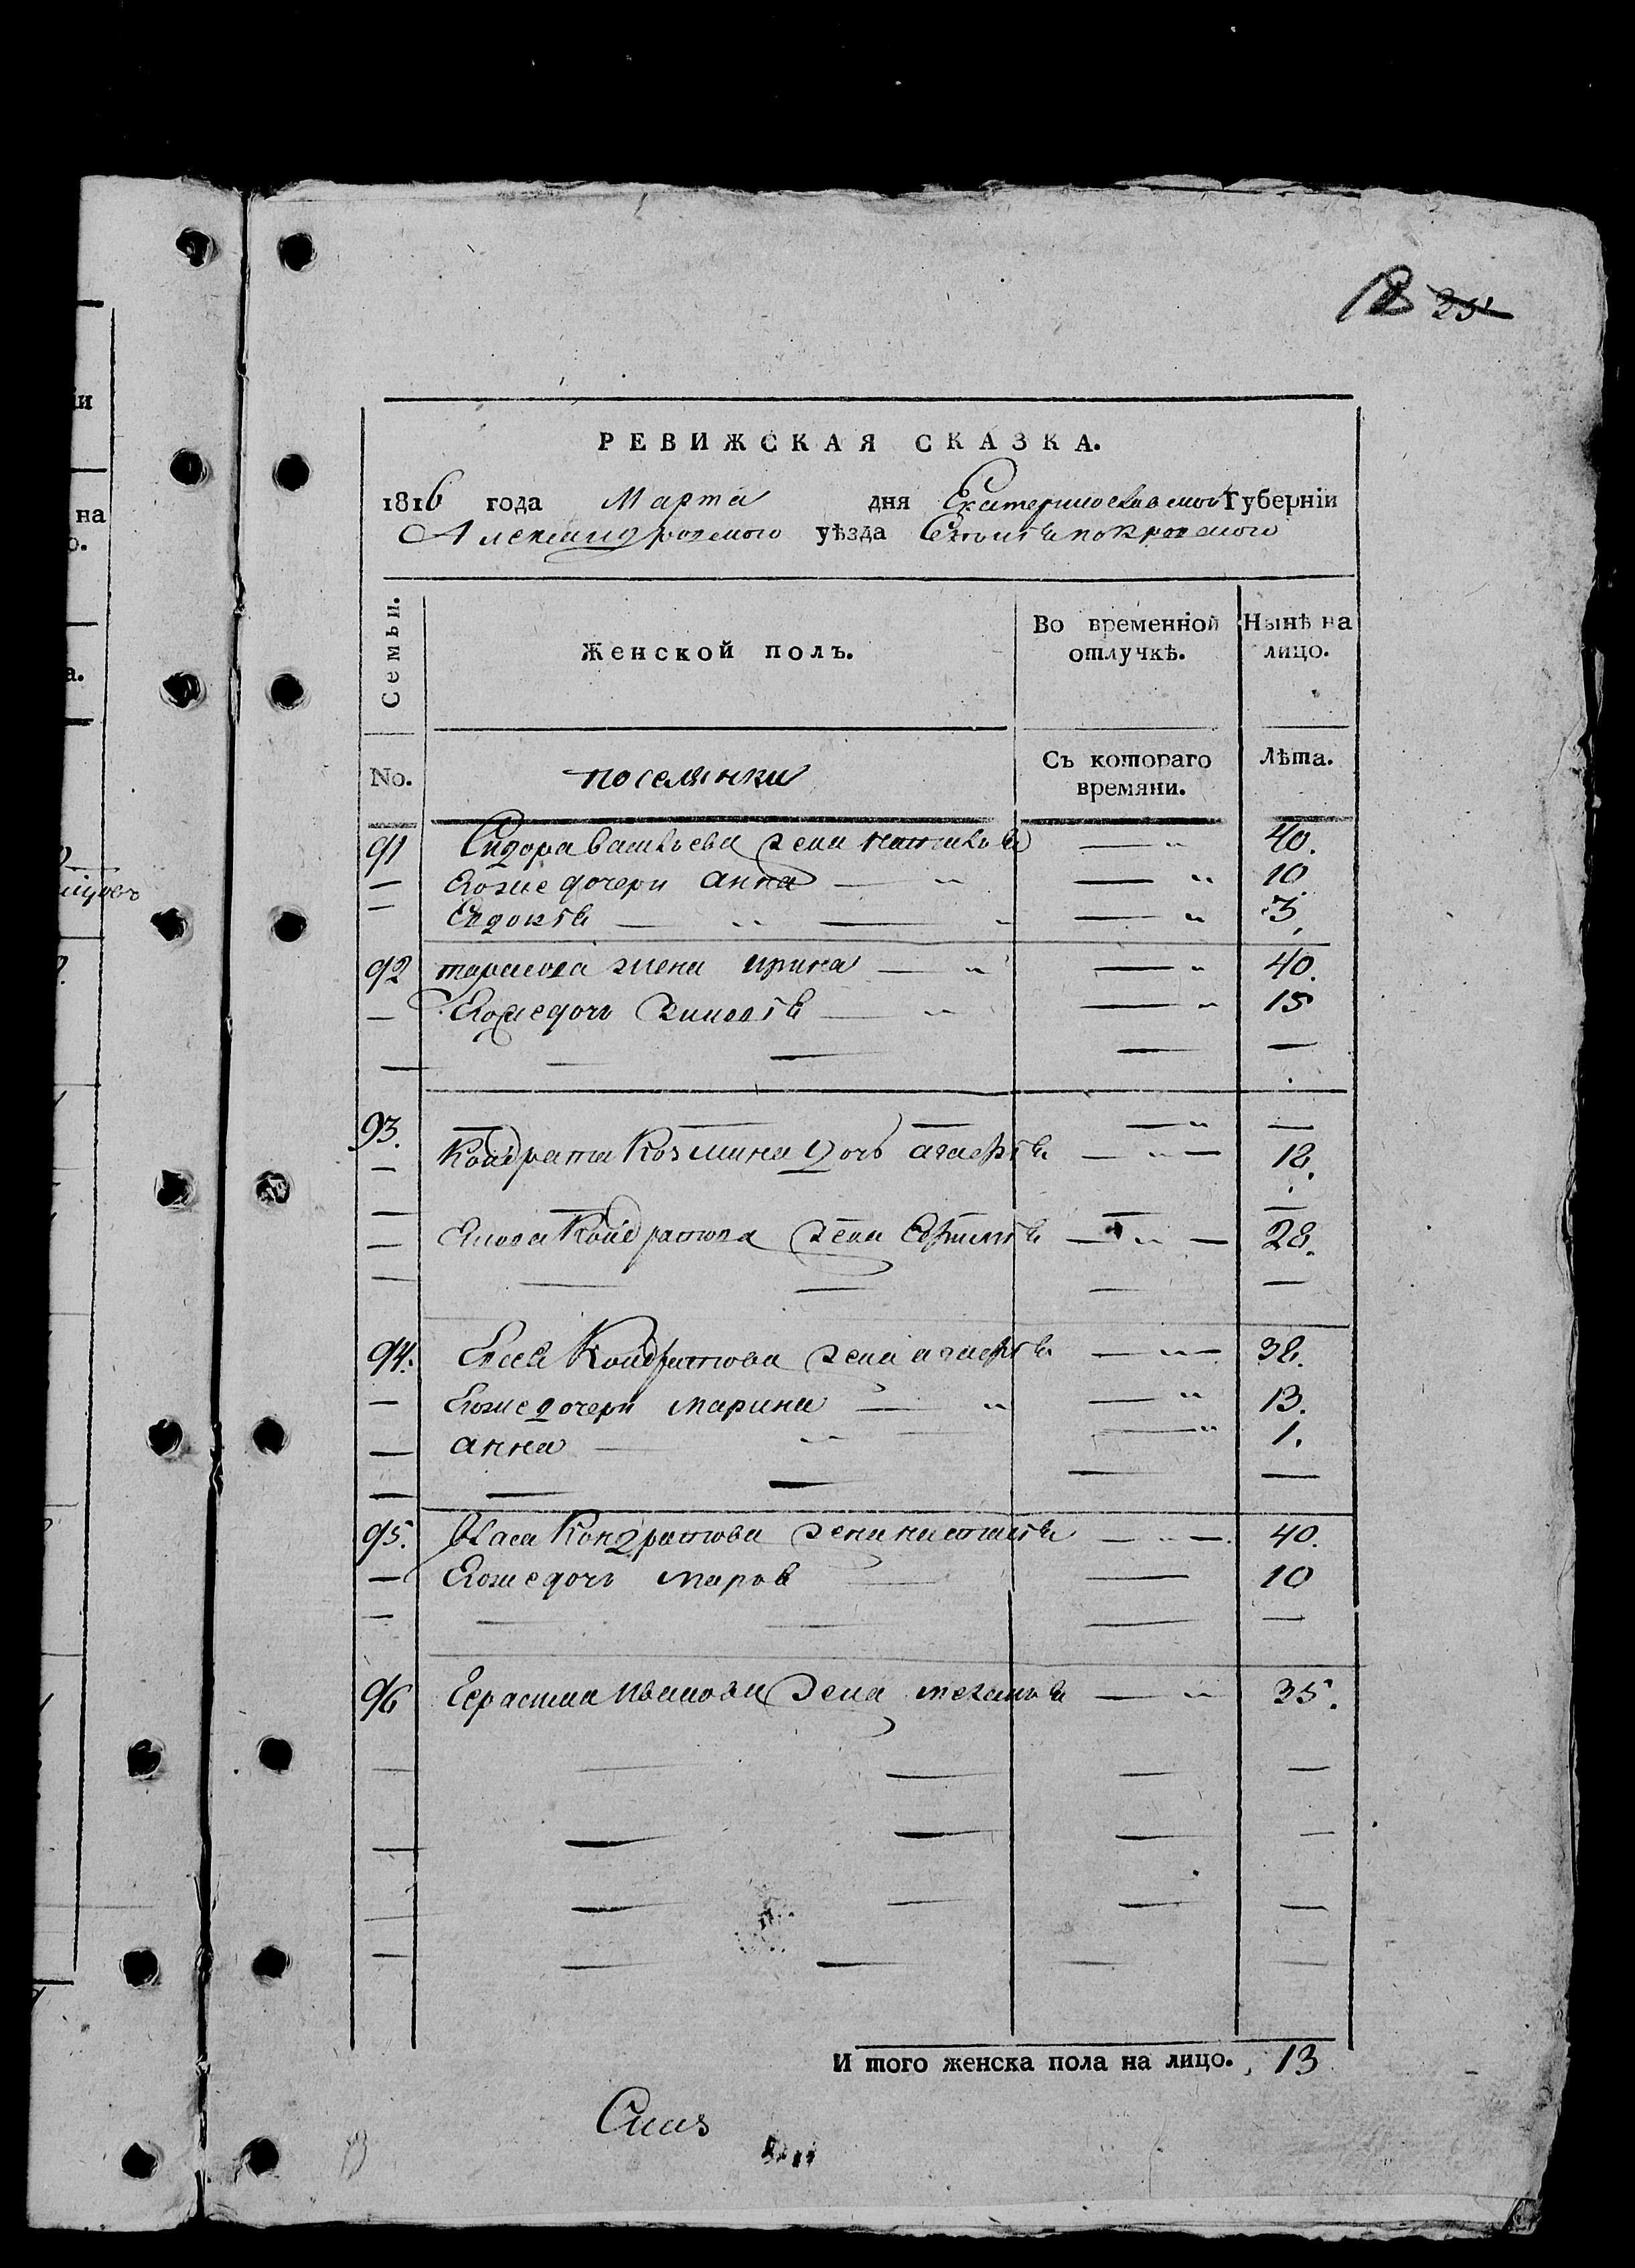 12 25
РЕВИЖСКАЯ СКАЗКА.
1816 года Марта дня Екатеринославской Губерніи
Александровскаго уѣзда
Семьи.
Женской полъ.
Во временной отлучкѣ.
Нынѣ на лицо.
No.
поселянки
Съ котораго времяни.
Лѣта.
91 Сидора Васильева жена наталья — " 40.
— Егоже дочери анна — " — " 10
— Евдокія — " — " — " 3.
92 тарасова жена ирина — " — " 40.
— Егоже дочь Зиновія — " — " 15
93. — — — — " —
— Кондрата Козмина дочь агафія — " — 18.
— Кондратова жена Ефимія — " — 28.
94. Евсея Кондратова жена агафія — " — 38.
— Егоже дочери марина — " — " 13.
— анна — " — — " 1.
95. Власа Кондратова жена настасія — " — 40.
— Егоже дочь марья — — 10
96 Герасима иванова жена татьяна — " 35.
И того женска пола на лицо. 13